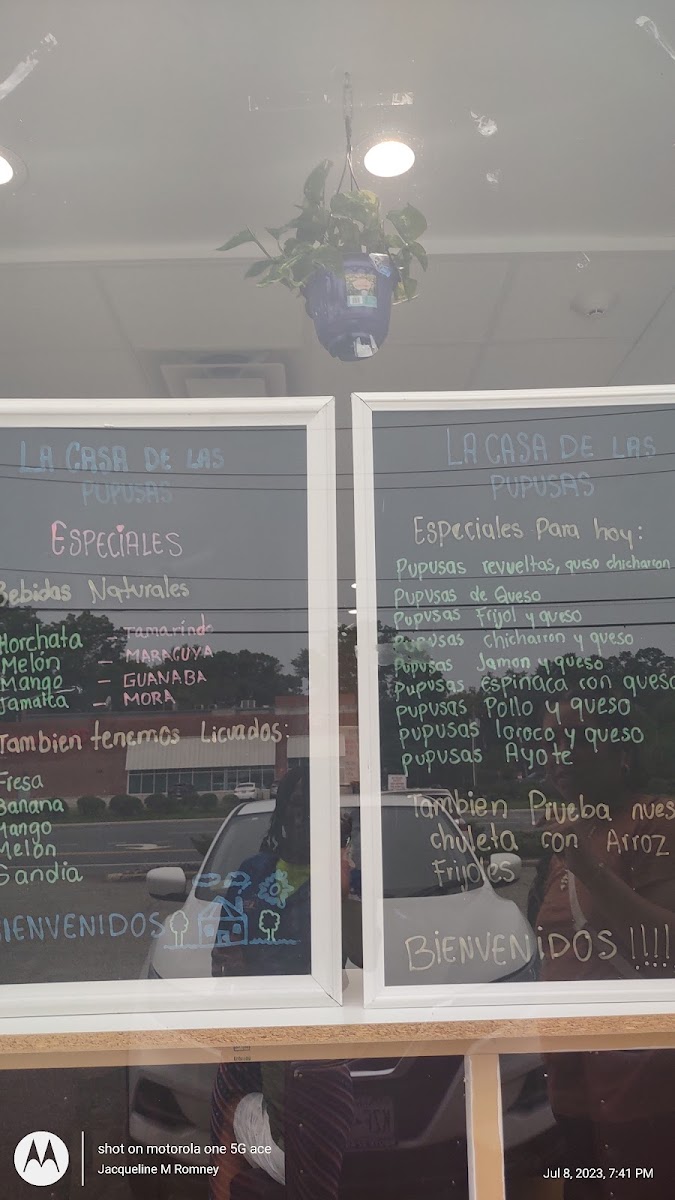 LA CASA DE LAS
PUPUSAS
ESPECIALES
Bebidas Naturales
Horchata - Tamarindo
Melón - MARACUYA
Mango - GUANABA
Jamaica - MORA
Tambien tenemos Licuados:
Fresa
Banana
Mango
Melon
Sandia
BIENVENIDOS
LA CASA DE LAS
PUPUSAS
Especiales Para hoy:
Pupusas revueltas, queso chicharron
Pupusas de Queso
Pupusas Frijol y queso
Pupusas chicharron y queso
Pupusas Jamon y queso
Pupusas espinaca con queso
Pupusas Pollo y queso
pupusas loroco y queso
pupusas Ayote
Tambien Prueba nues
chuleta con Arroz
Frijoles
BIENVENIDOS !!!!
shot on motorola one 5G ace
Jacqueline M Romney
Jul 8, 2023, 7:41 PM